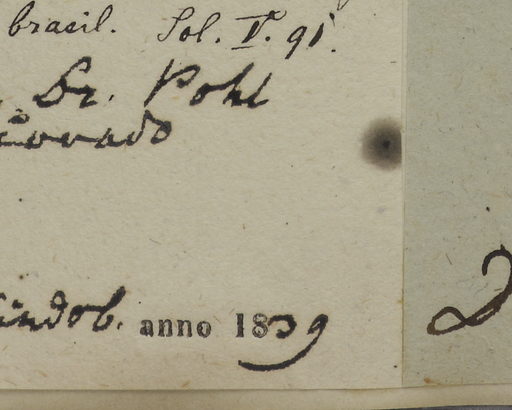 brasil. Sol. V. 91.
Dr. Pohl
Corvado
indob. anno 1839